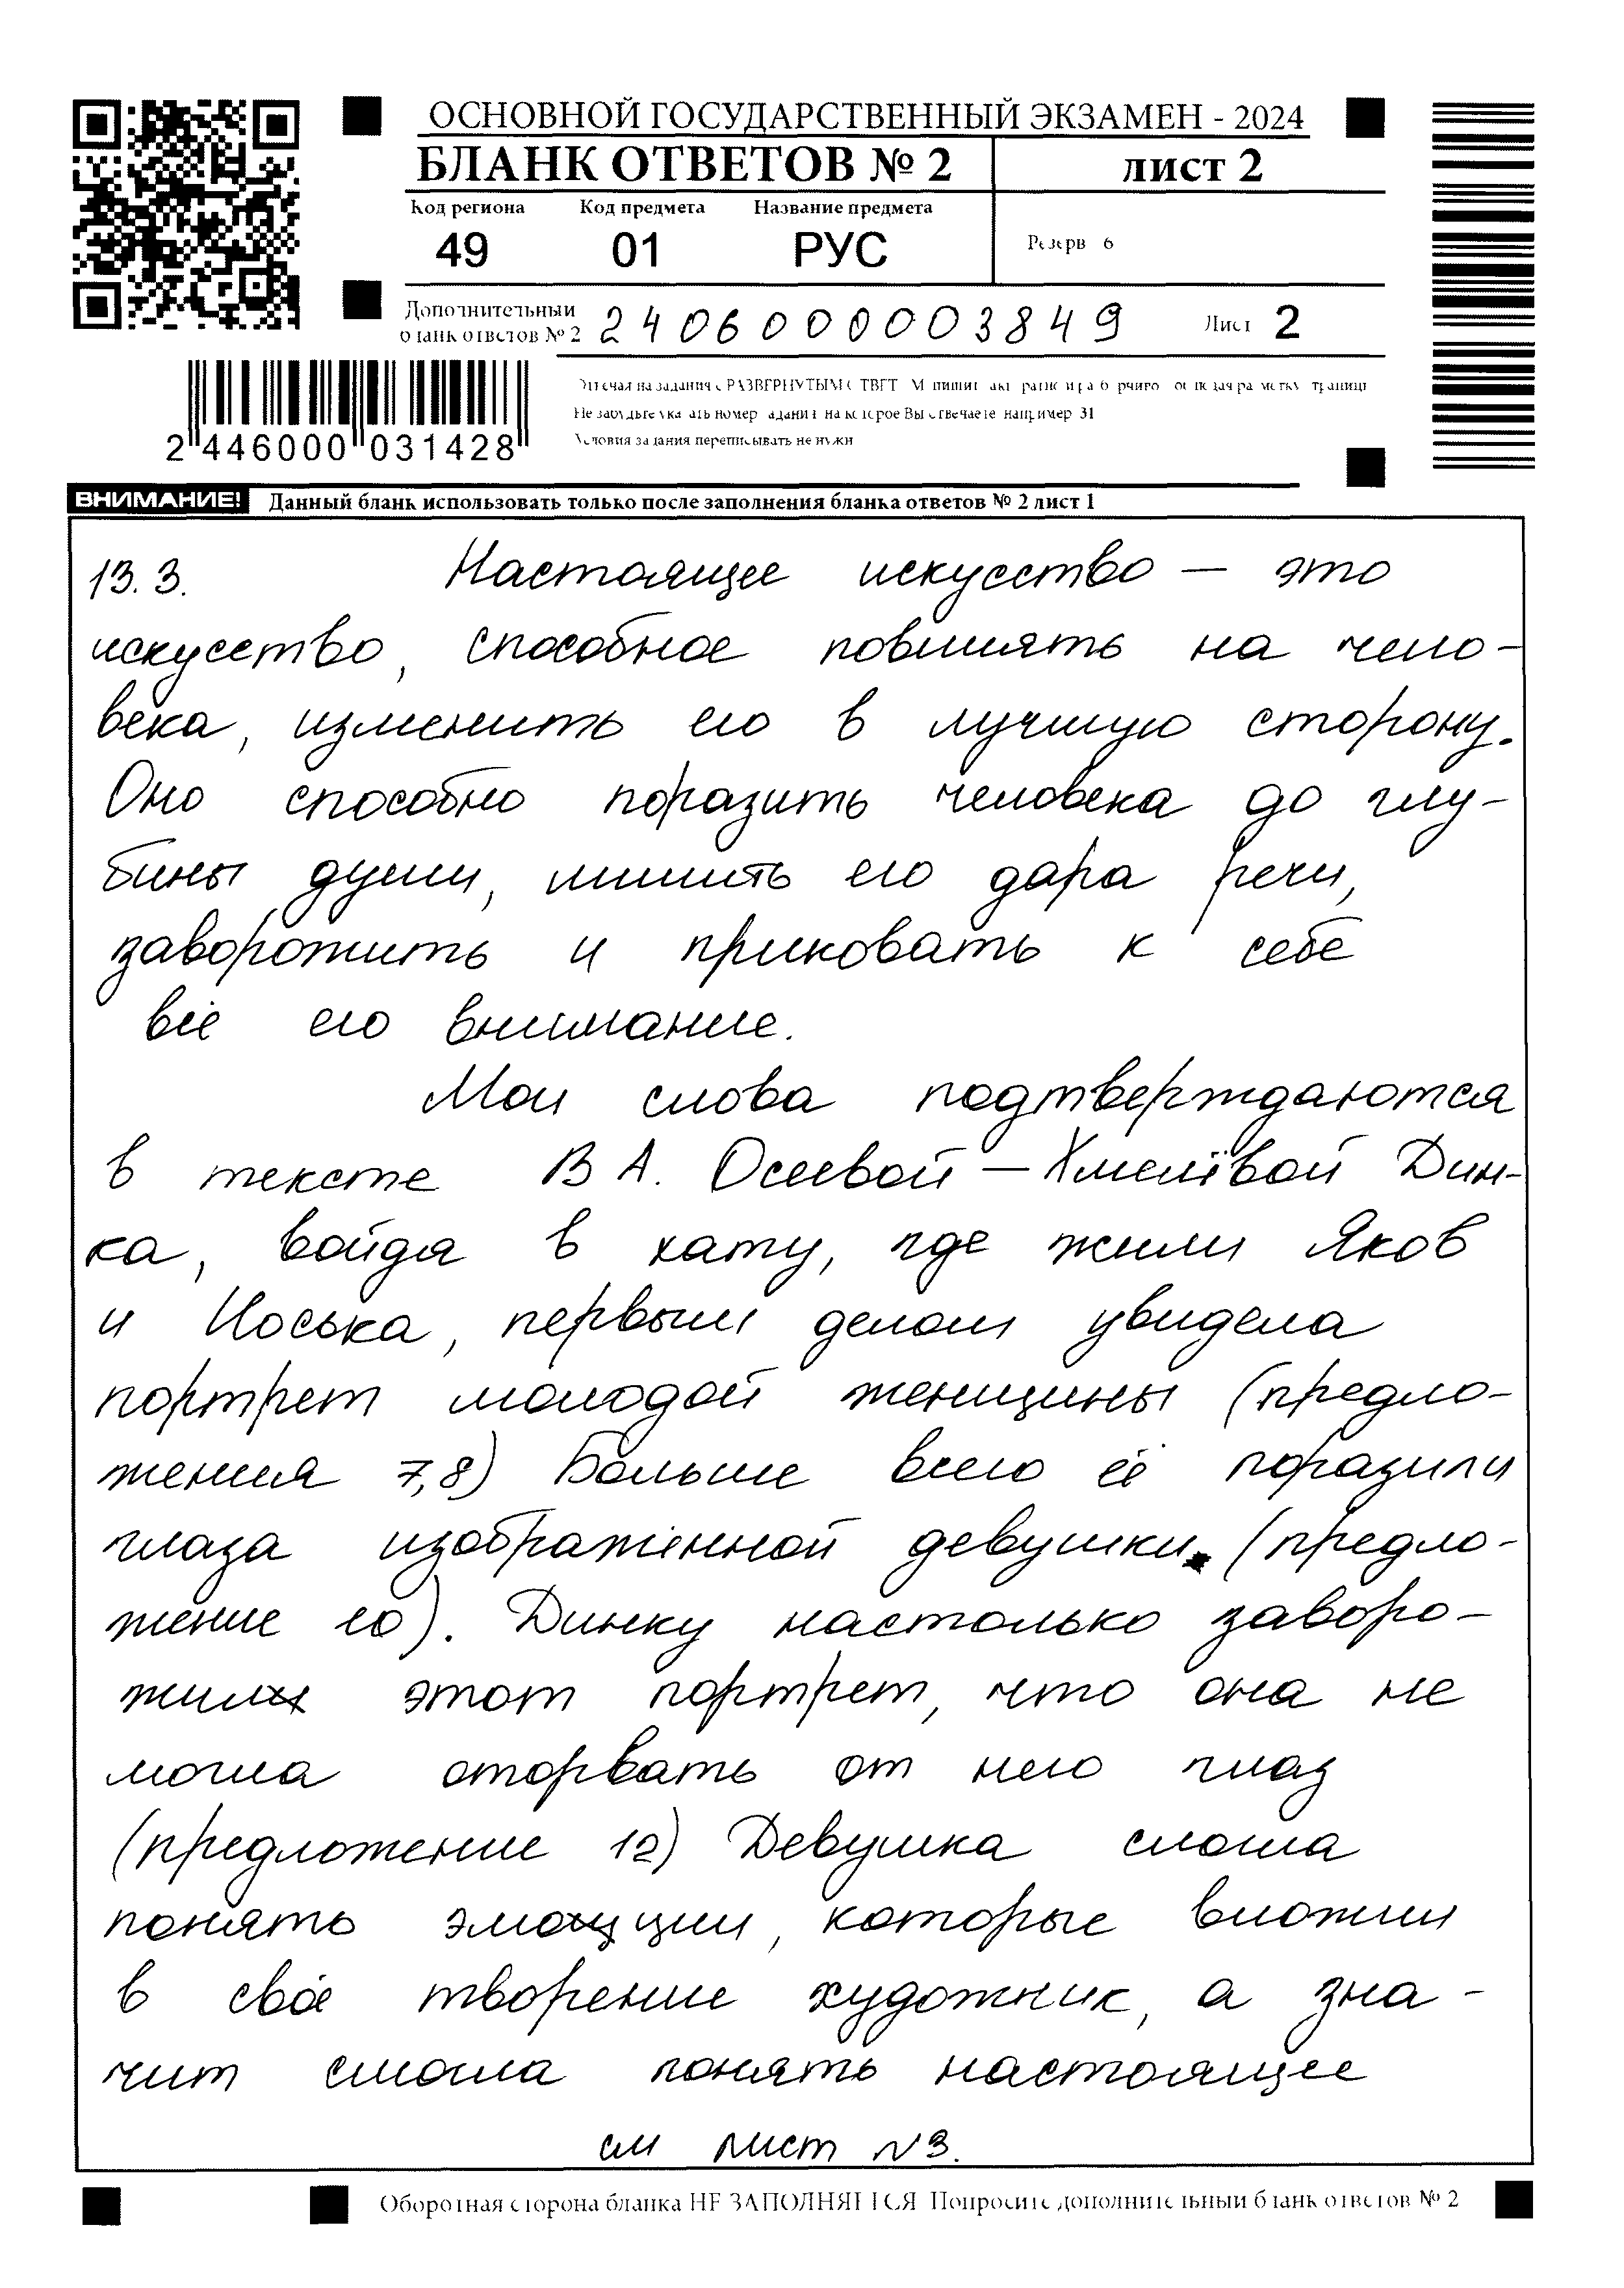 ОСНОВНОЙ ГОСУДАРСТВЕННЫЙ ЭКЗАМЕН - 2024
БЛАНК ОТВЕТОВ № 2
ЛИСТ 2
Код региона Код предмета Название предмета
49 01 РУС
Резерв 6
Дополнительный
бланк ответов № 2
2406000003849
Лист 2
2 446000 031428
Не забудьте указать номер задания на которое Вы отвечаете например 31
Условия задания переписывать не нужно
ВНИМАНИЕ! Данный бланк использовать только после заполнения бланка ответов № 2 лист 1
13.3. Настоящее искусство — это
искусство, способное повлиять на чело-
века, изменить его в лучшую сторону.
Оно способно поразить человека до глу-
бины души, лишить его дара речи,
заворожить и приковать к себе
всё его внимание.
Мои слова подтверждаются
в тексте В А. Осеевой — Хмелёвой Дин-
ка, войдя в хату, где жили Яков
и Иоська, первым делом увидела
портрет молодой женщины (предло-
жения 7,8) Больше всего её поразили
глаза изображённой девушки. (предло-
жение 10). Динку настолько заворо-
жил этот портрет, что она не
могла оторвать от него глаз
(предложение 12) Девушка смогла
понять эмоции, которые вложил
в своё творение художник, а зна-
чит смогла понять настоящее
см лист №3.
Оборотная сторона бланка НЕ ЗАПОЛНЯЕТСЯ Попросите дополнительный бланк ответов № 2